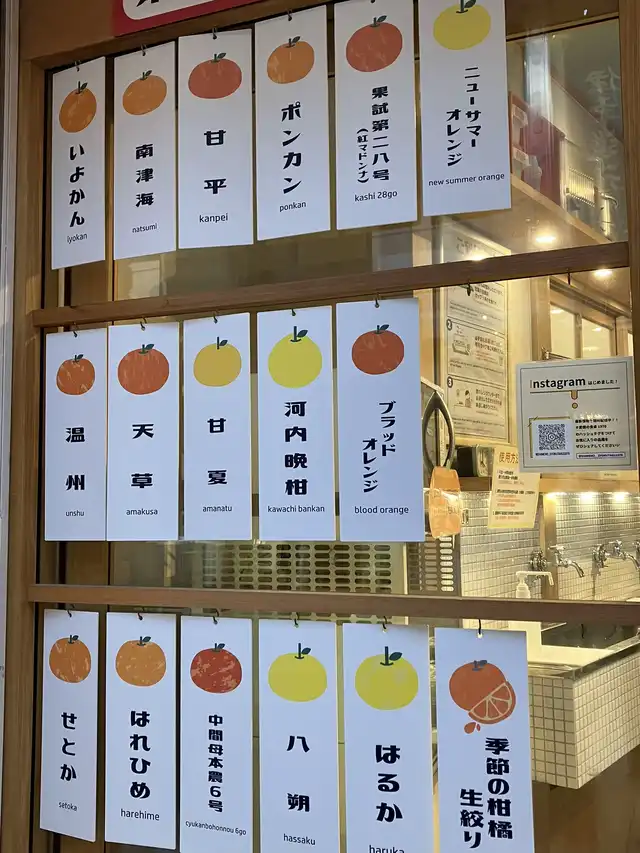 いよかん
iyokan
南津海
natsumi
甘平
kanpei
ポンカン
ponkan
果試第二八号
(紅マドンナ)
kashi 28go
ニューサマー
オレンジ
new summer orange
温州
unshu
天草
amakusa
甘夏
amanatu
河内晩柑
kawachi bankan
ブラッド
オレンジ
blood orange
Instagram はじめました!
使用方
せとか
setoka
はれひめ
harehime
中間母本農6号
cyukanbohonnou 6go
八朔
hassaku
はるか
haruka
季節の柑橘
生絞り